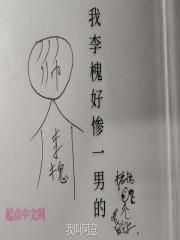 我李槐好惨一男的
帅
李
槐
起点中文网
我叫阿意